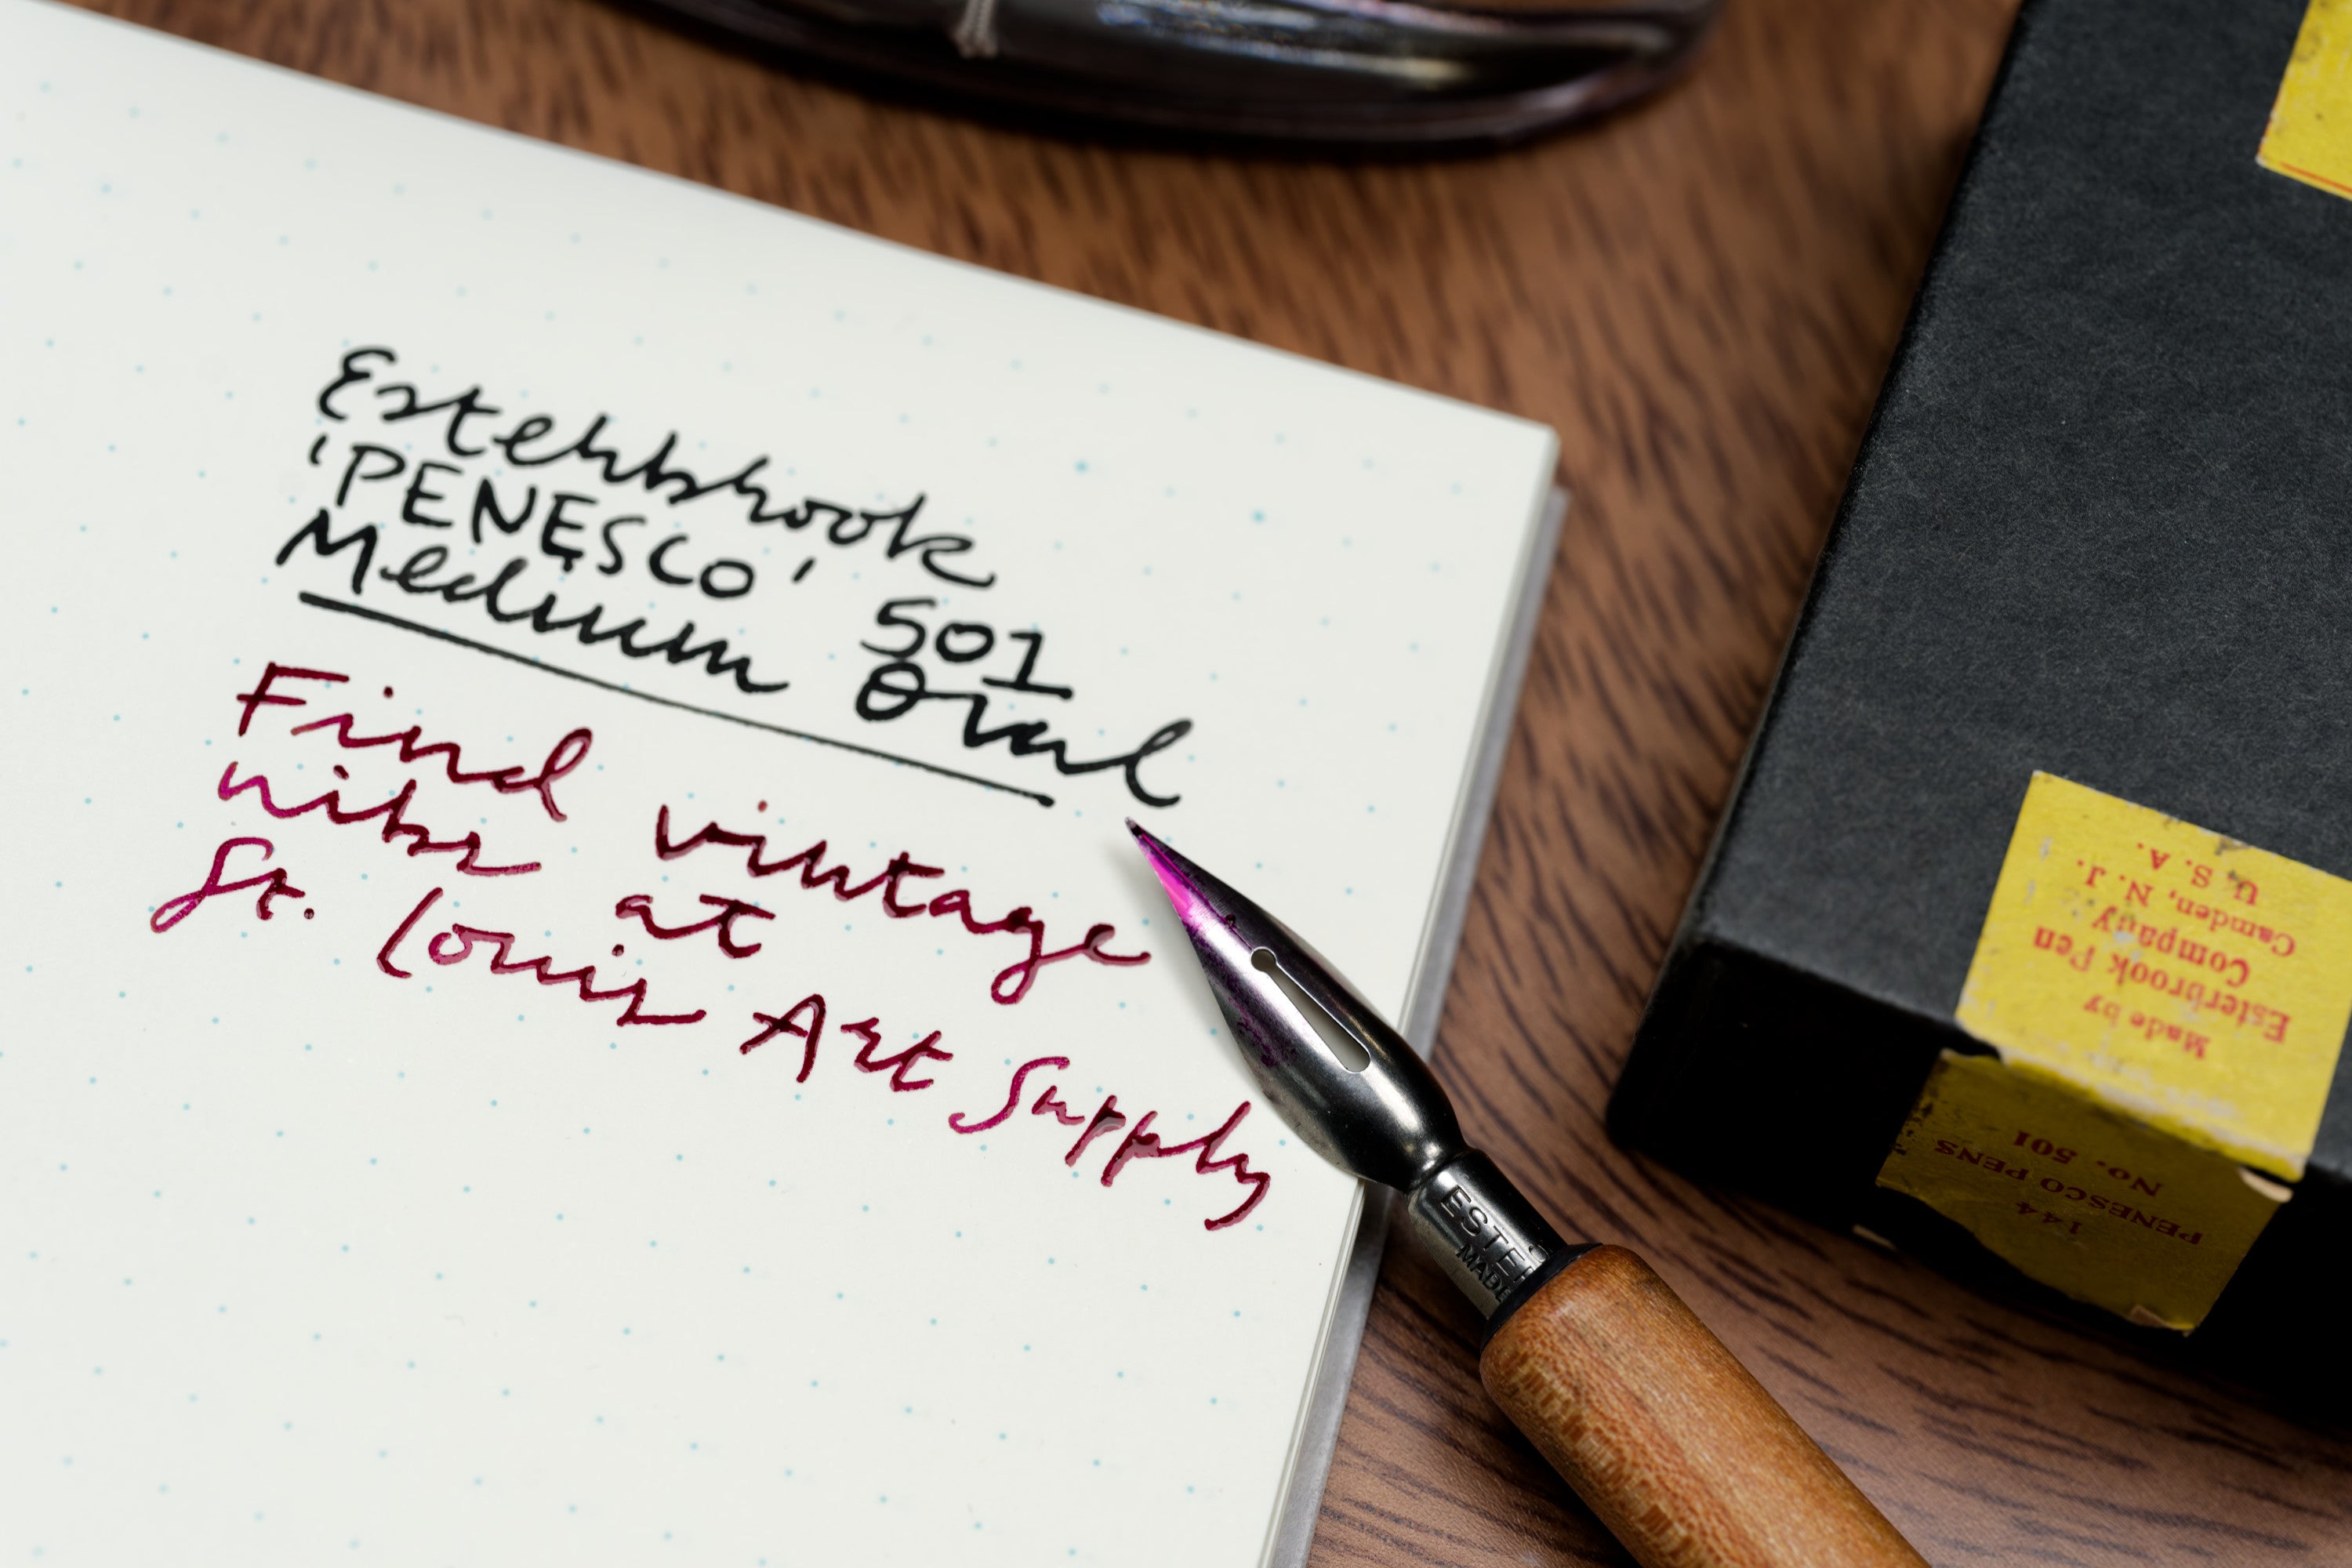 Esterbrook
'PENESCO' 501
Medium Oval
Find vintage
nibs at
St. Louis Art Supply
ESTE
MADE
Made by
Esterbrook Pen
Company
Camden, N. J.
U. S. A.
144
PENESCO PENS
No. 501